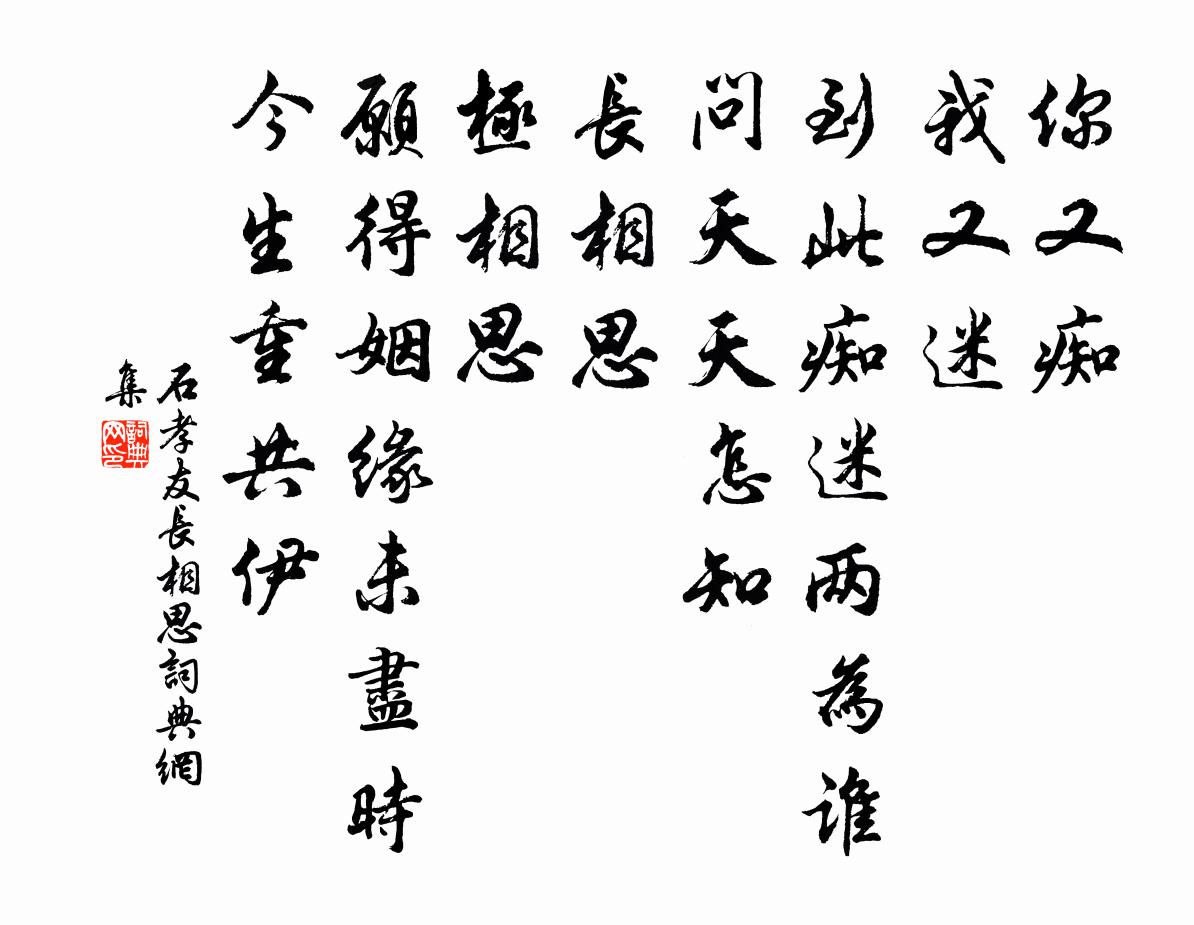 你又痴
我又迷
到此痴迷两為誰
問天天怎知
長相思
極相思
願得姻緣未盡時
今生重共伊
石孝友長相思詞典網
集
詞典网印